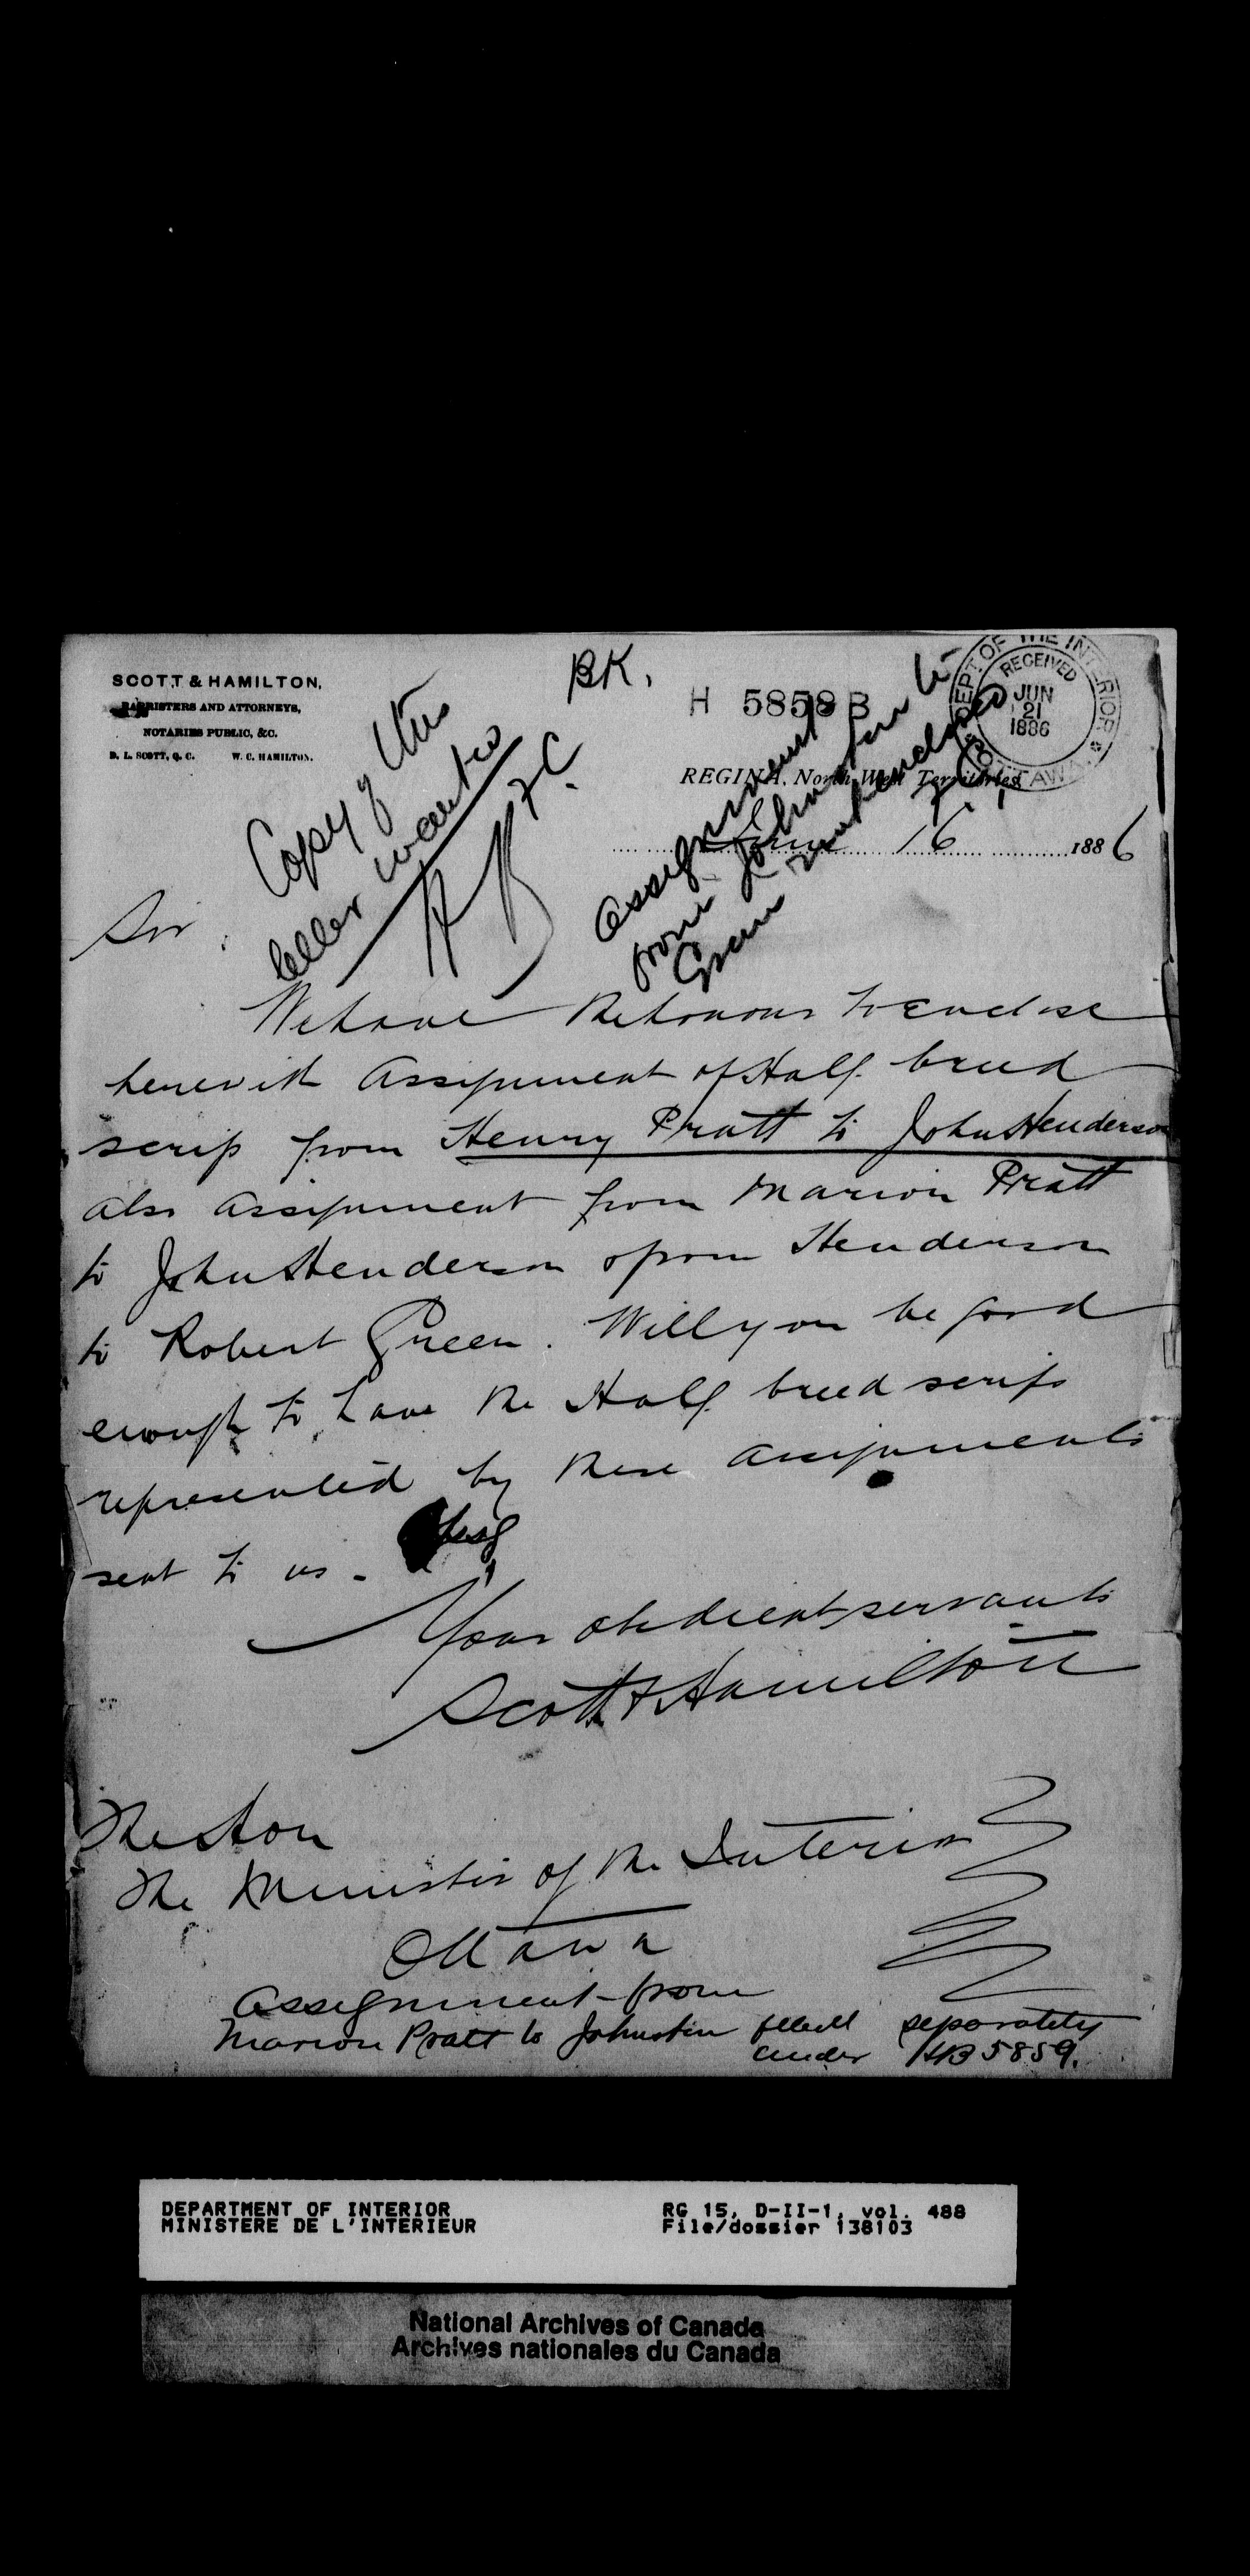 SCOTT & HAMILTON,
BARRISTERS AND ATTORNEYS,
NOTARIES PUBLIC, &C.
D. L. SCOTT, Q. C. W. C. HAMILTON.
BK.
H 5858 B
DEPT. OF THE INTERIOR
RECEIVED
JUN
21
1886
OTTAWA
REGINA, North West Territories
June 16 1886
Copy of this
letter wanted
Assignment
from Johnston to
Green not enclosed
Sir:
We have the honour to enclose
herewith Assignment of Half breed
scrip from Henry Pratt to John Henderson
also assignment from Marion Pratt
to John Henderson & from Henderson
to Robert Green. Will you be good
enough to have the Half breed scrip
represented by these assignments
sent to us.
Your obedient servants
Scott & Hamilton
The Hon
The Minister of the Interior
Ottawa
Assignment from
Marion Pratt to Johnston filed separately
under HB 5859.
DEPARTMENT OF INTERIOR RG 15, D-II-1, vol. 488
MINISTERE DE L'INTERIEUR File/dossier 138103
National Archives of Canada
Archives nationales du Canada